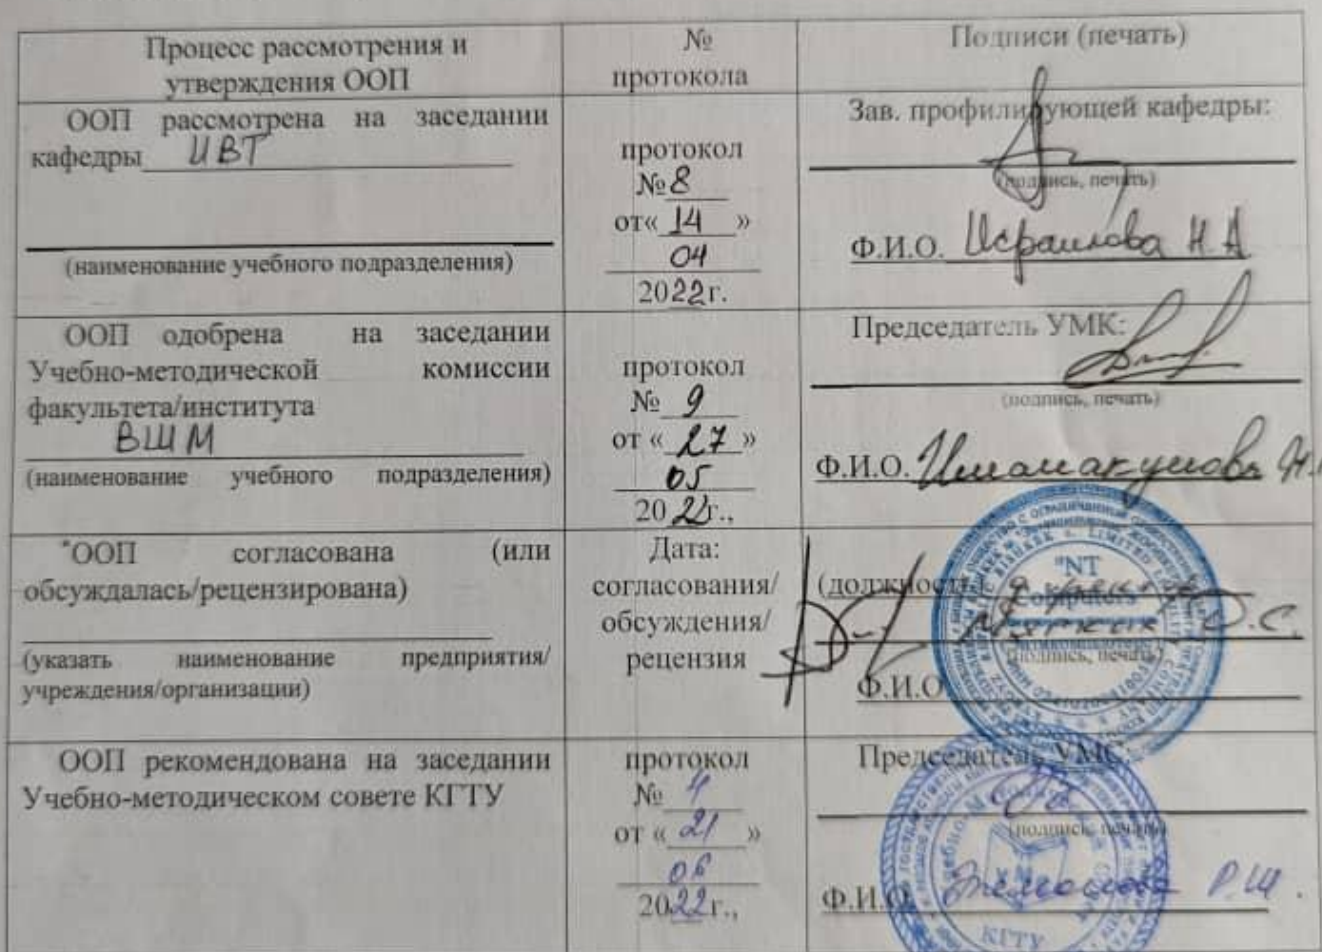 Процесс рассмотрения и
утверждения ООП
№
протокола
Подписи (печать)
ООП рассмотрена на заседании
кафедры ИВТ
(наименование учебного подразделения)
протокол
№ 8
от« 14 »
04
2022г.
Зав. профилирующей кафедры:
(подпись, печать)
Ф.И.О. Исраилова Н.А
ООП одобрена на заседании
Учебно-методической комиссии
факультета/института
ВШМ
(наименование учебного подразделения)
протокол
№ 9
от « 27 »
05
2022г.,
Председатель УМК:
(подпись, печать)
Ф.И.О.
*ООП согласована (или
обсуждалась/рецензирована)
(указать наименование предприятия/
учреждения/организации)
Дата:
согласования/
обсуждения/
рецензия
(должность)
"NT
Computers
О.С.
(подпись, печать)
Ф.И.О
ООП рекомендована на заседании
Учебно-методическом совете КГТУ
протокол
№ 4
от « 21 »
06
2022г.,
Председатель УМС:
(подпись, печать)
Ф.И.О. Р.Ш.
КГТУ